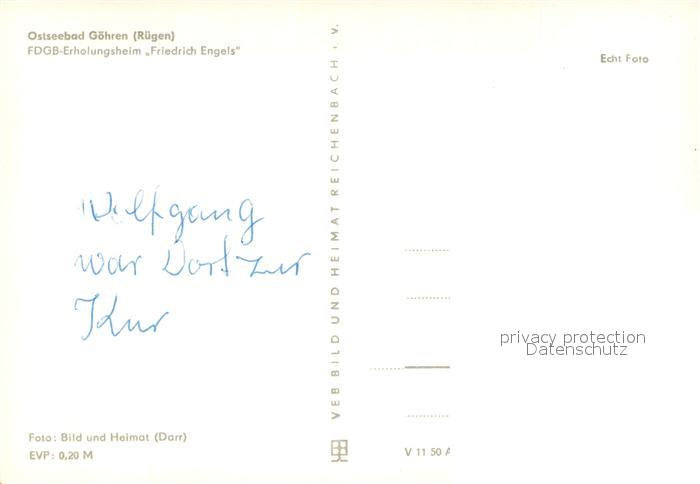 Ostseebad Göhren (Rügen)
FDGB-Erholungsheim „Friedrich Engels"
Echt Foto
VEB BILD UND HEIMAT REICHENBACH i. V.
Wolfgang
war Dort zur
Kur
privacy protection
Datenschutz
Foto: Bild und Heimat (Darr)
EVP: 0,20 M
V 11 50 A